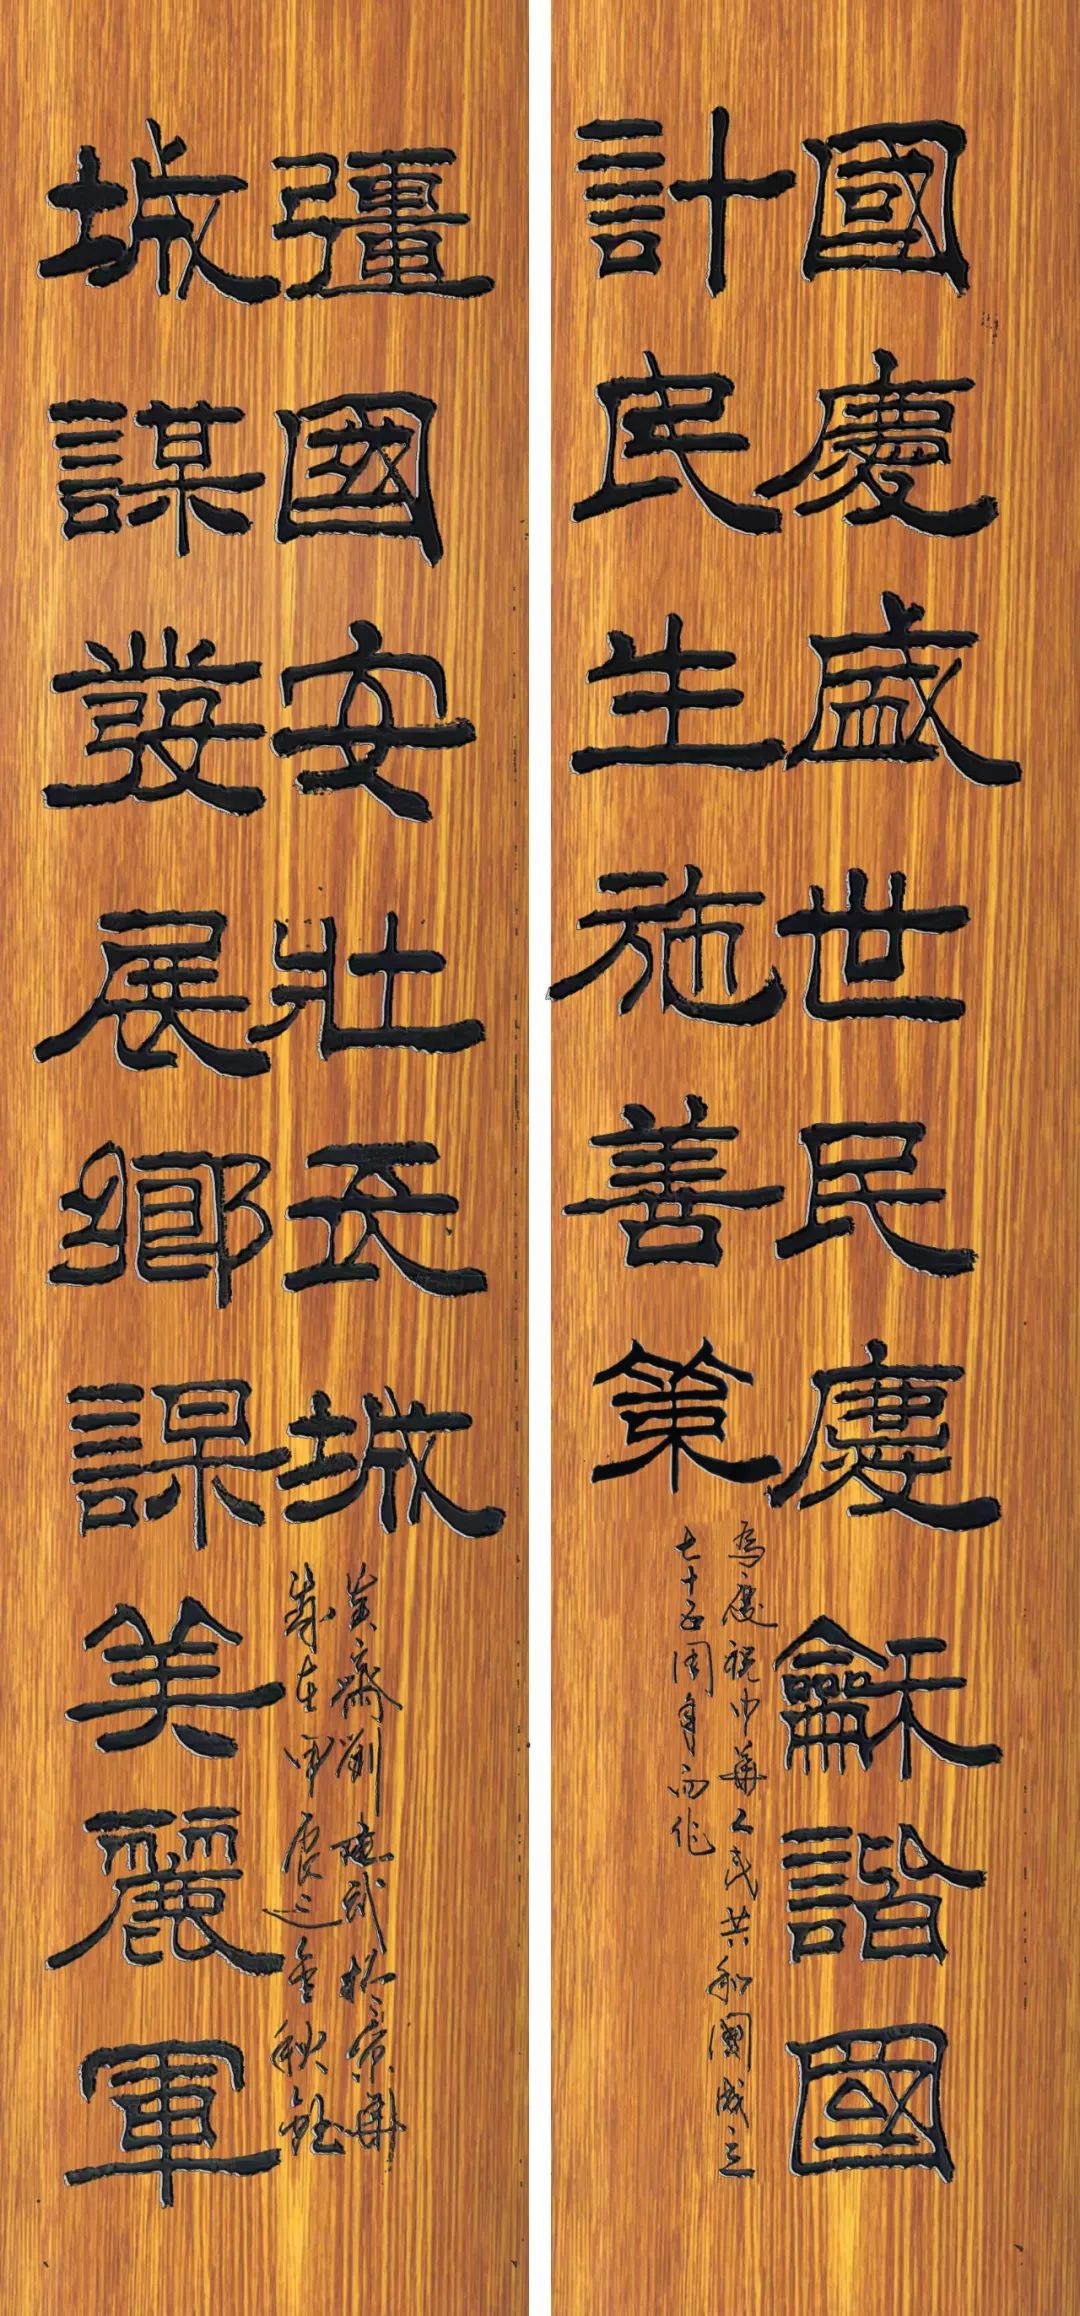 國慶盛世民慶龢諧國
計民生施善策
為慶祝中華人民共和國成立
七十五周年而作
城謀發展鄉謀美麗軍
彊國安壯長城
齋劉曉武於京華
歲在甲辰之金秋